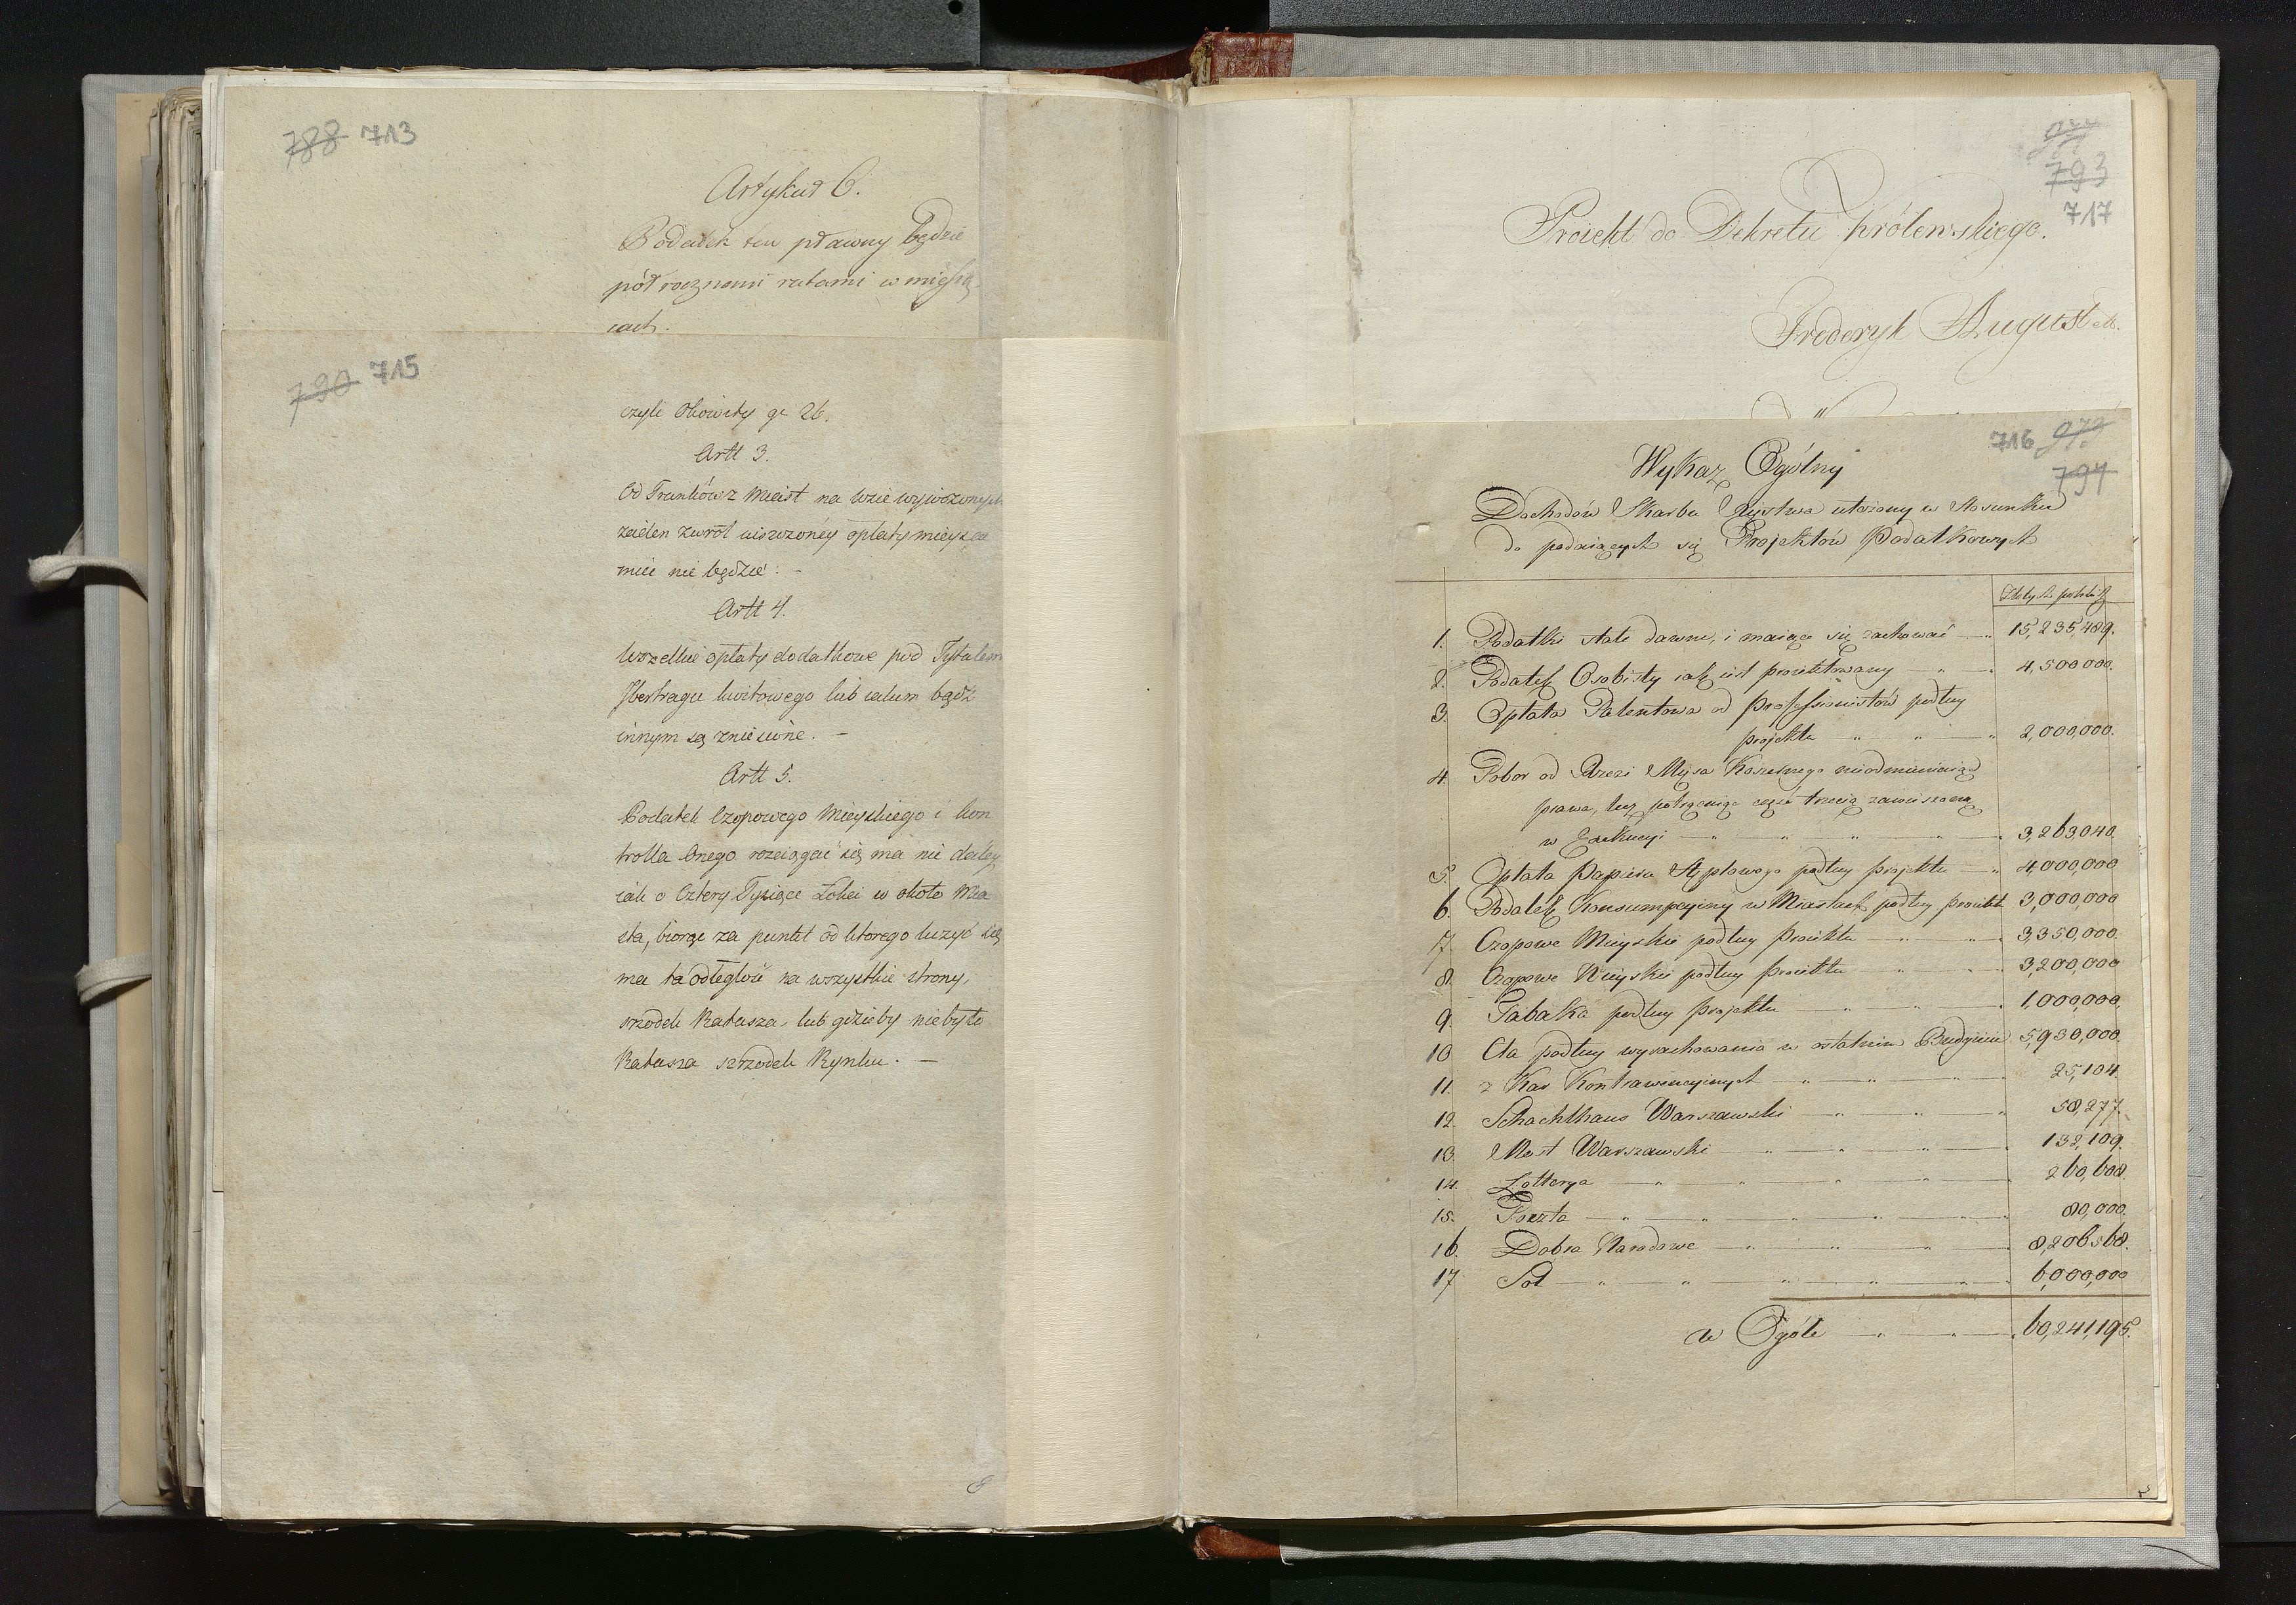 788 713
Artykuł 6.
Podatek ten płatny będzie
półrocznemi ratami w miesią
cach.
790 715
czyli Okowity gr 26.
Artt 3.
Od Trunków z Miast na wsie wywożonych
żaden zwrot uiszczoney opłaty mieysca
mieć nie będzie: –
Artt 4.
Wszelkie opłaty dodatkowe pod Tytułem
kwitowego lub iakim bądź
innym są zniesione. –
Artt 5.
Podatek Czopowego Mieyskiego i kon
trolla Onego rozciągać się ma nie daley
iak o Cztery Tysiące Łokci w około Mia
sta, biorąc za punkt od ktorego liczyć się
ma ta odległość na wszystkie strony,
srzodek Ratusza, lub gdzieby niebyło
Ratusza srzodek Rynku. –
793
717
Proiekt do Dekretu Królewskiego.
Frederyk August etc.
716
794
Wykaz Ogólny
Dochodów Skarbu Xięstwa ułożony w Stosunku
do podaiących się Projektów Podatkowych
Złotych polskich
1. Podatki stałe dawne, i maiące się zachować 15,235,489.
2. Podatek Osobisty iak iest proiektowany 4,500,000.
3. Opłata Patentowa od Professionistów podług
projektu 2,000,000.
4. Pobor od Rzezi Mięsa Koszernego nieodmieniaiąc
prawa, lecz potrącaiąc część trzecią zawieszoną
w Exekucyi 3,263040.
5. Opłata Papieru Stęplowego podług projektu 4,000,000
6. Podatek Konsumpcyiny w Miastach podług proiekt 3,000,000
7. Czopowe Mieyskie podług Proiektu 3,350,000.
8. Czopowe Wieyskie podług Proiektu 3,200,000
9. Tabaka podług Projektu 1,000,000.
10 Cła podług wyrachowania w ostatnim Budżecie 5,930,000.
11. z Kar Kontrawencyinych 25,104.
12. Schachthaus Warszawski 58,277.
13. Most Warszawski 132,109.
14. Lotterya 260,608.
15. Poczta 80,000.
16. Dobra Narodowe 8,206568.
17 Sol 6,000,000
w Ogóle 60,241,195.